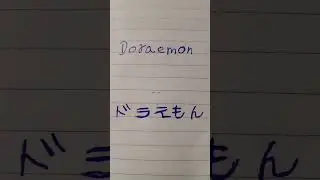 Doraemon
ドラえもん